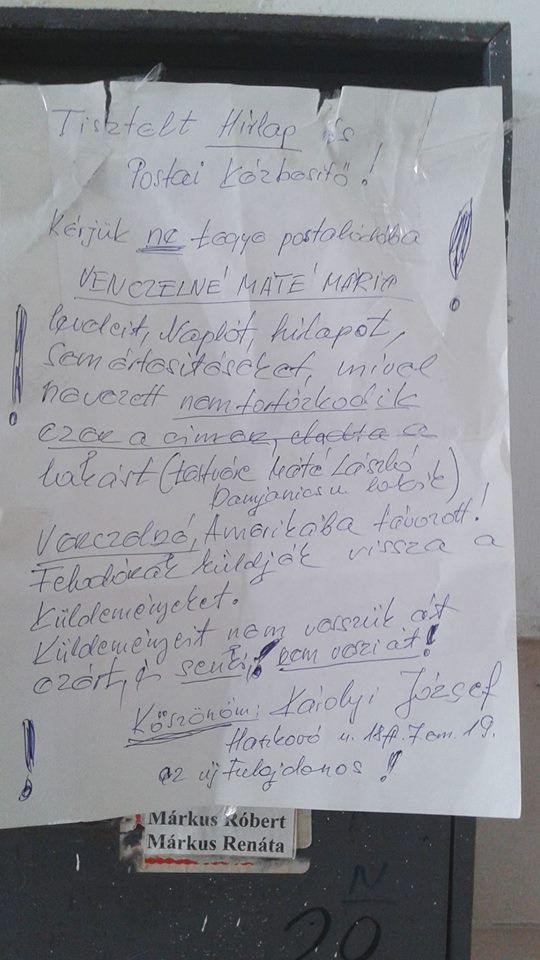 Tisztelt Hirlap és
Postai Kézbesitő!
Kérjük ne tegye postaládába
VENCZELNÉ MÁTÉ MÁRIA
leveleit, Naplót, hirlapot,
sem értesitéseket, mivel
nevezett nem tartózkodik
ezen a cimen, eladta a
lakást (testvére Máté László
Damjanics u. lakik)
Venczelné, Amerikába távozott!
Feladónak küldjék vissza a
küldeményeket.
Küldeményeit nem vesszük át
ezért, és senki! nem veszi át!
Köszönöm: Károlyi József
u. 18 ff. 7. em. 19.
az új Tulajdonos!
Márkus Róbert
Márkus Renáta
N
20